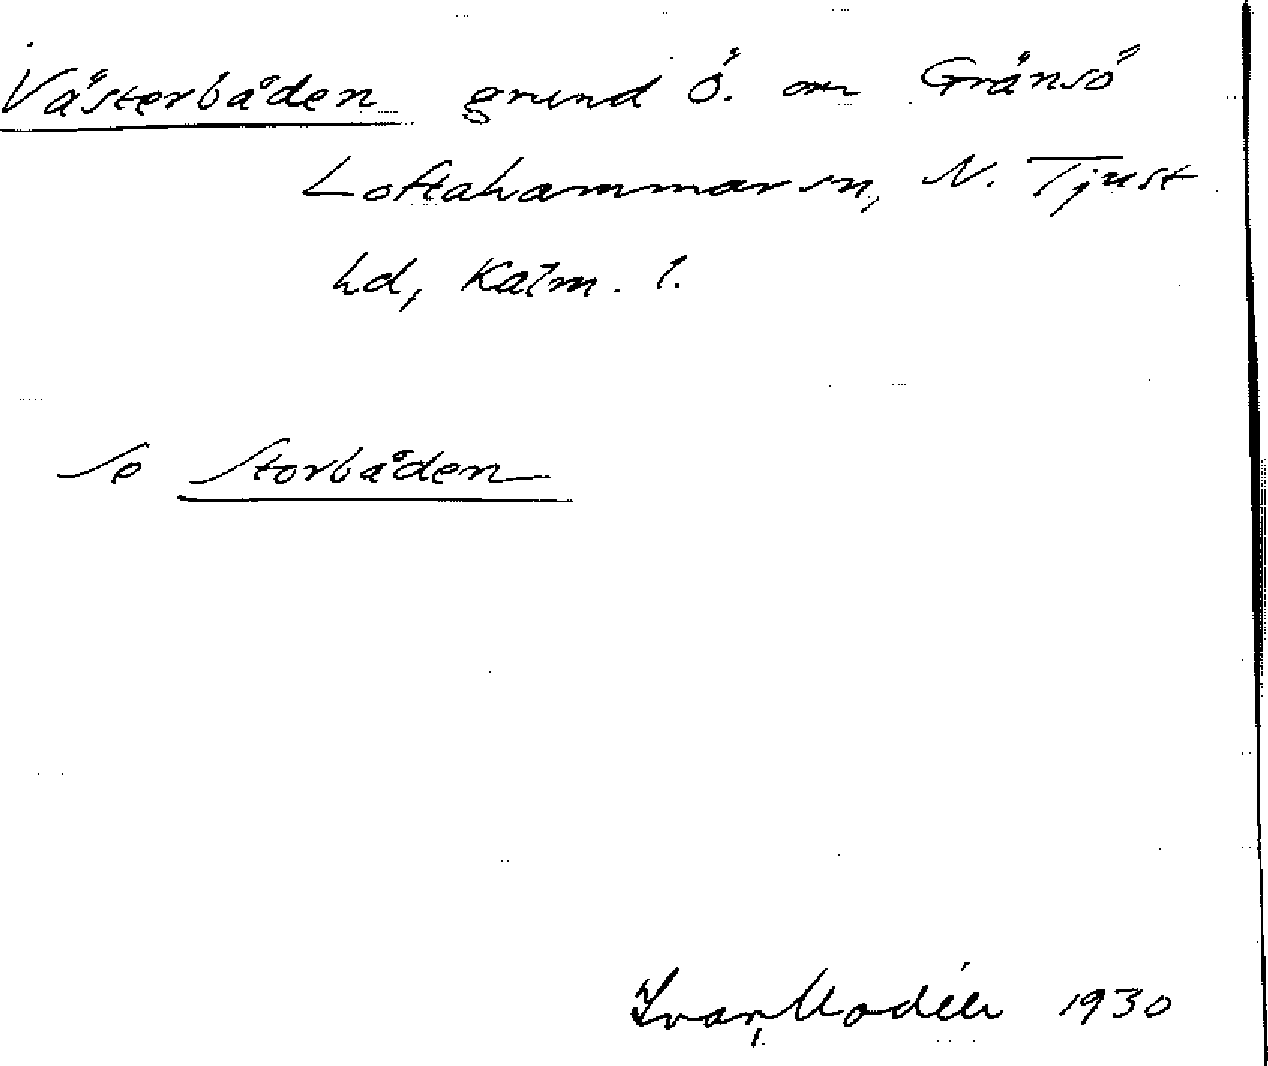 Västerbåden grund ö. om Gränsö
Loftahammar sn, N. Tjust
hd, Kalm. l.
se Storbåden
Ivar Modéer 1930